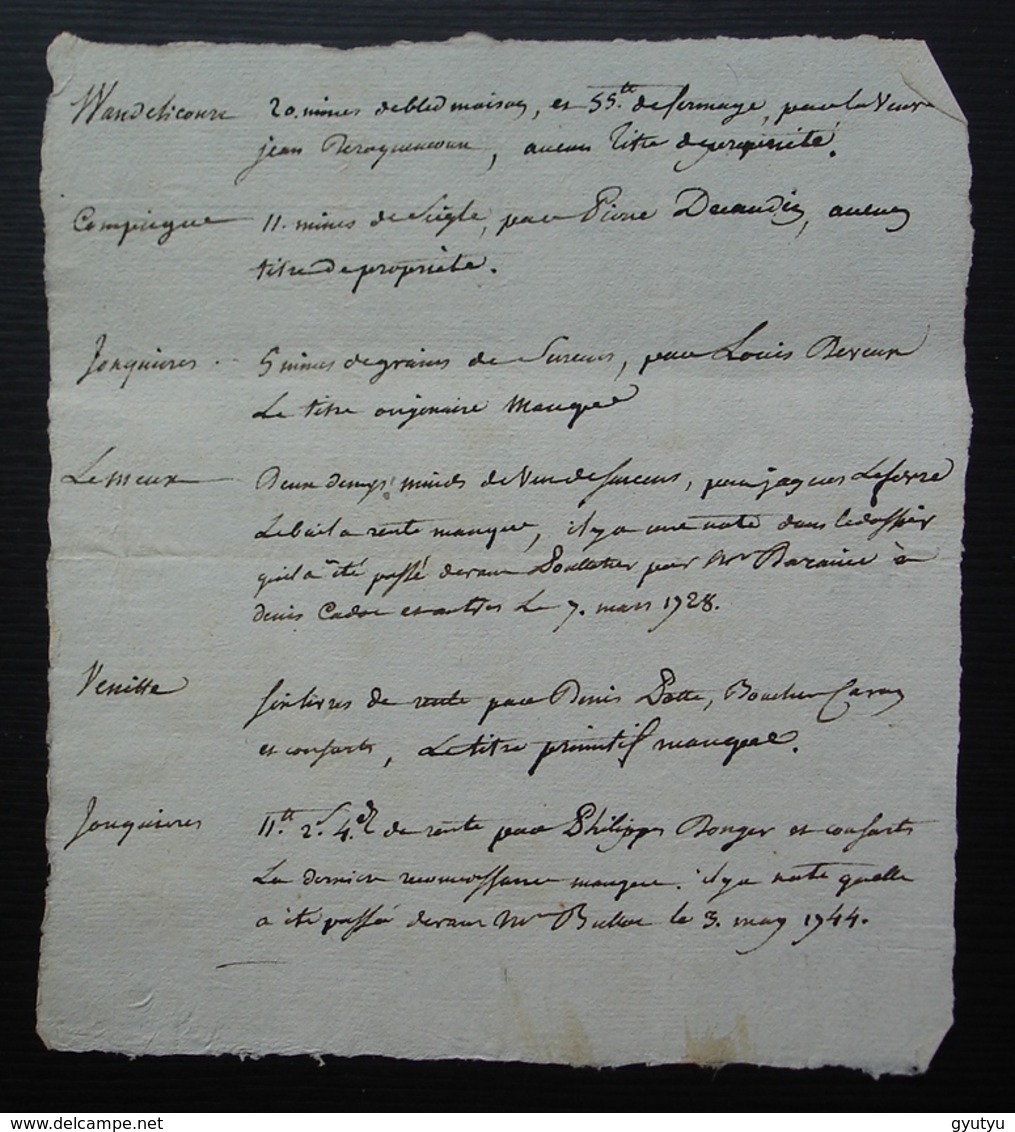 Wandelicourt 20. mines de bled maison, et 55.tt de fermage, par la Veuve
jean , aucun titre de propriété.
Compiegne 11. mines de seigle, par Pierre Decaudin, aucun
titre de propriété.
Jonquieres 5 mines de grains de surcens, par Louis
Le titre originaire manque
Le meux Deux demys muids de Vin de surcens, par jacques Lefevre
Le bail a rente manque, il y a une note dans le dossier
qu'il a été passé devant Poulletier par Mr à
denis Cadot et autres Le 7. mars 1728.
Venette six livres de rente par Denis Potte, Boucher Caron
et consorts, Le titre primitif manque.
Jonquieres 11.tt 2.s 4.d de rente par Philippes Bonger et consorts
La derniere reconnoissance manque. il y a note quelle
a été passée devant Mr le 3. may 1744.
gyutyu